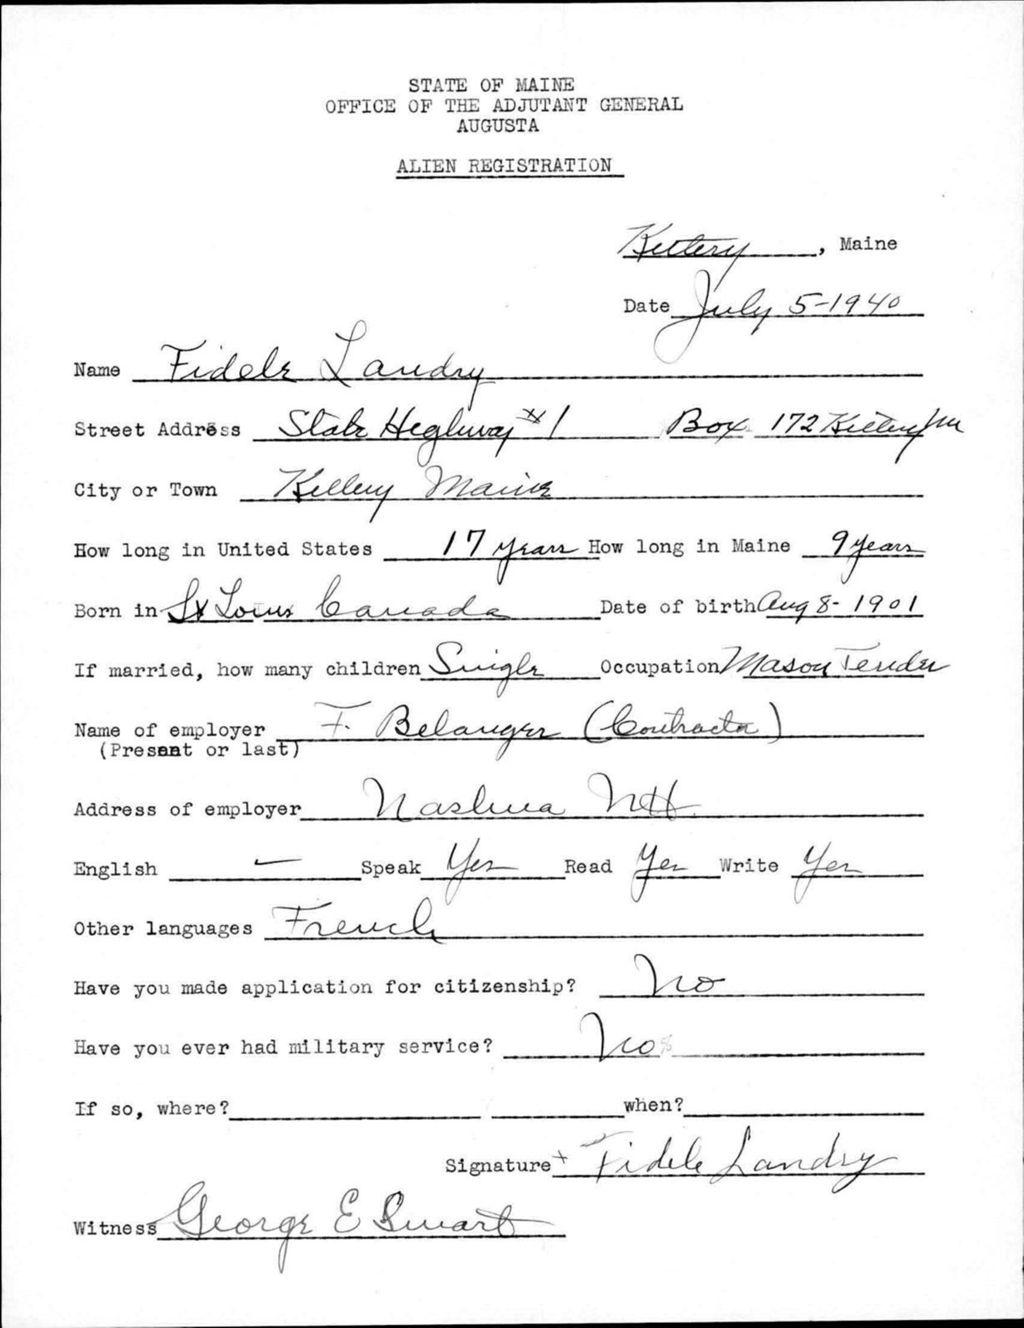 STATE OF MAINE
OFFICE OF THE ADJUTANT GENERAL
AUGUSTA
ALIEN REGISTRATION
Kittery, Maine
Date July 5-1940
Name Fidele Landry
Street Address State Highway #1 Box 172 Kittery Me
City or Town Kittery Maine
How long in United States 17 years How long in Maine 9 years
Born in St Louis Canada Date of birth Aug 8-1901
If married, how many children Single Occupation Mason Tender
Name of employer F. Belanger (Contractor)
(Present or last)
Address of employer Nashua NH
English — Speak Yes Read Yes Write Yes
Other languages French
Have you made application for citizenship? No
Have you ever had military service? No
If so, where? when?
Signature x Fidele Landry
Witness George E Swart